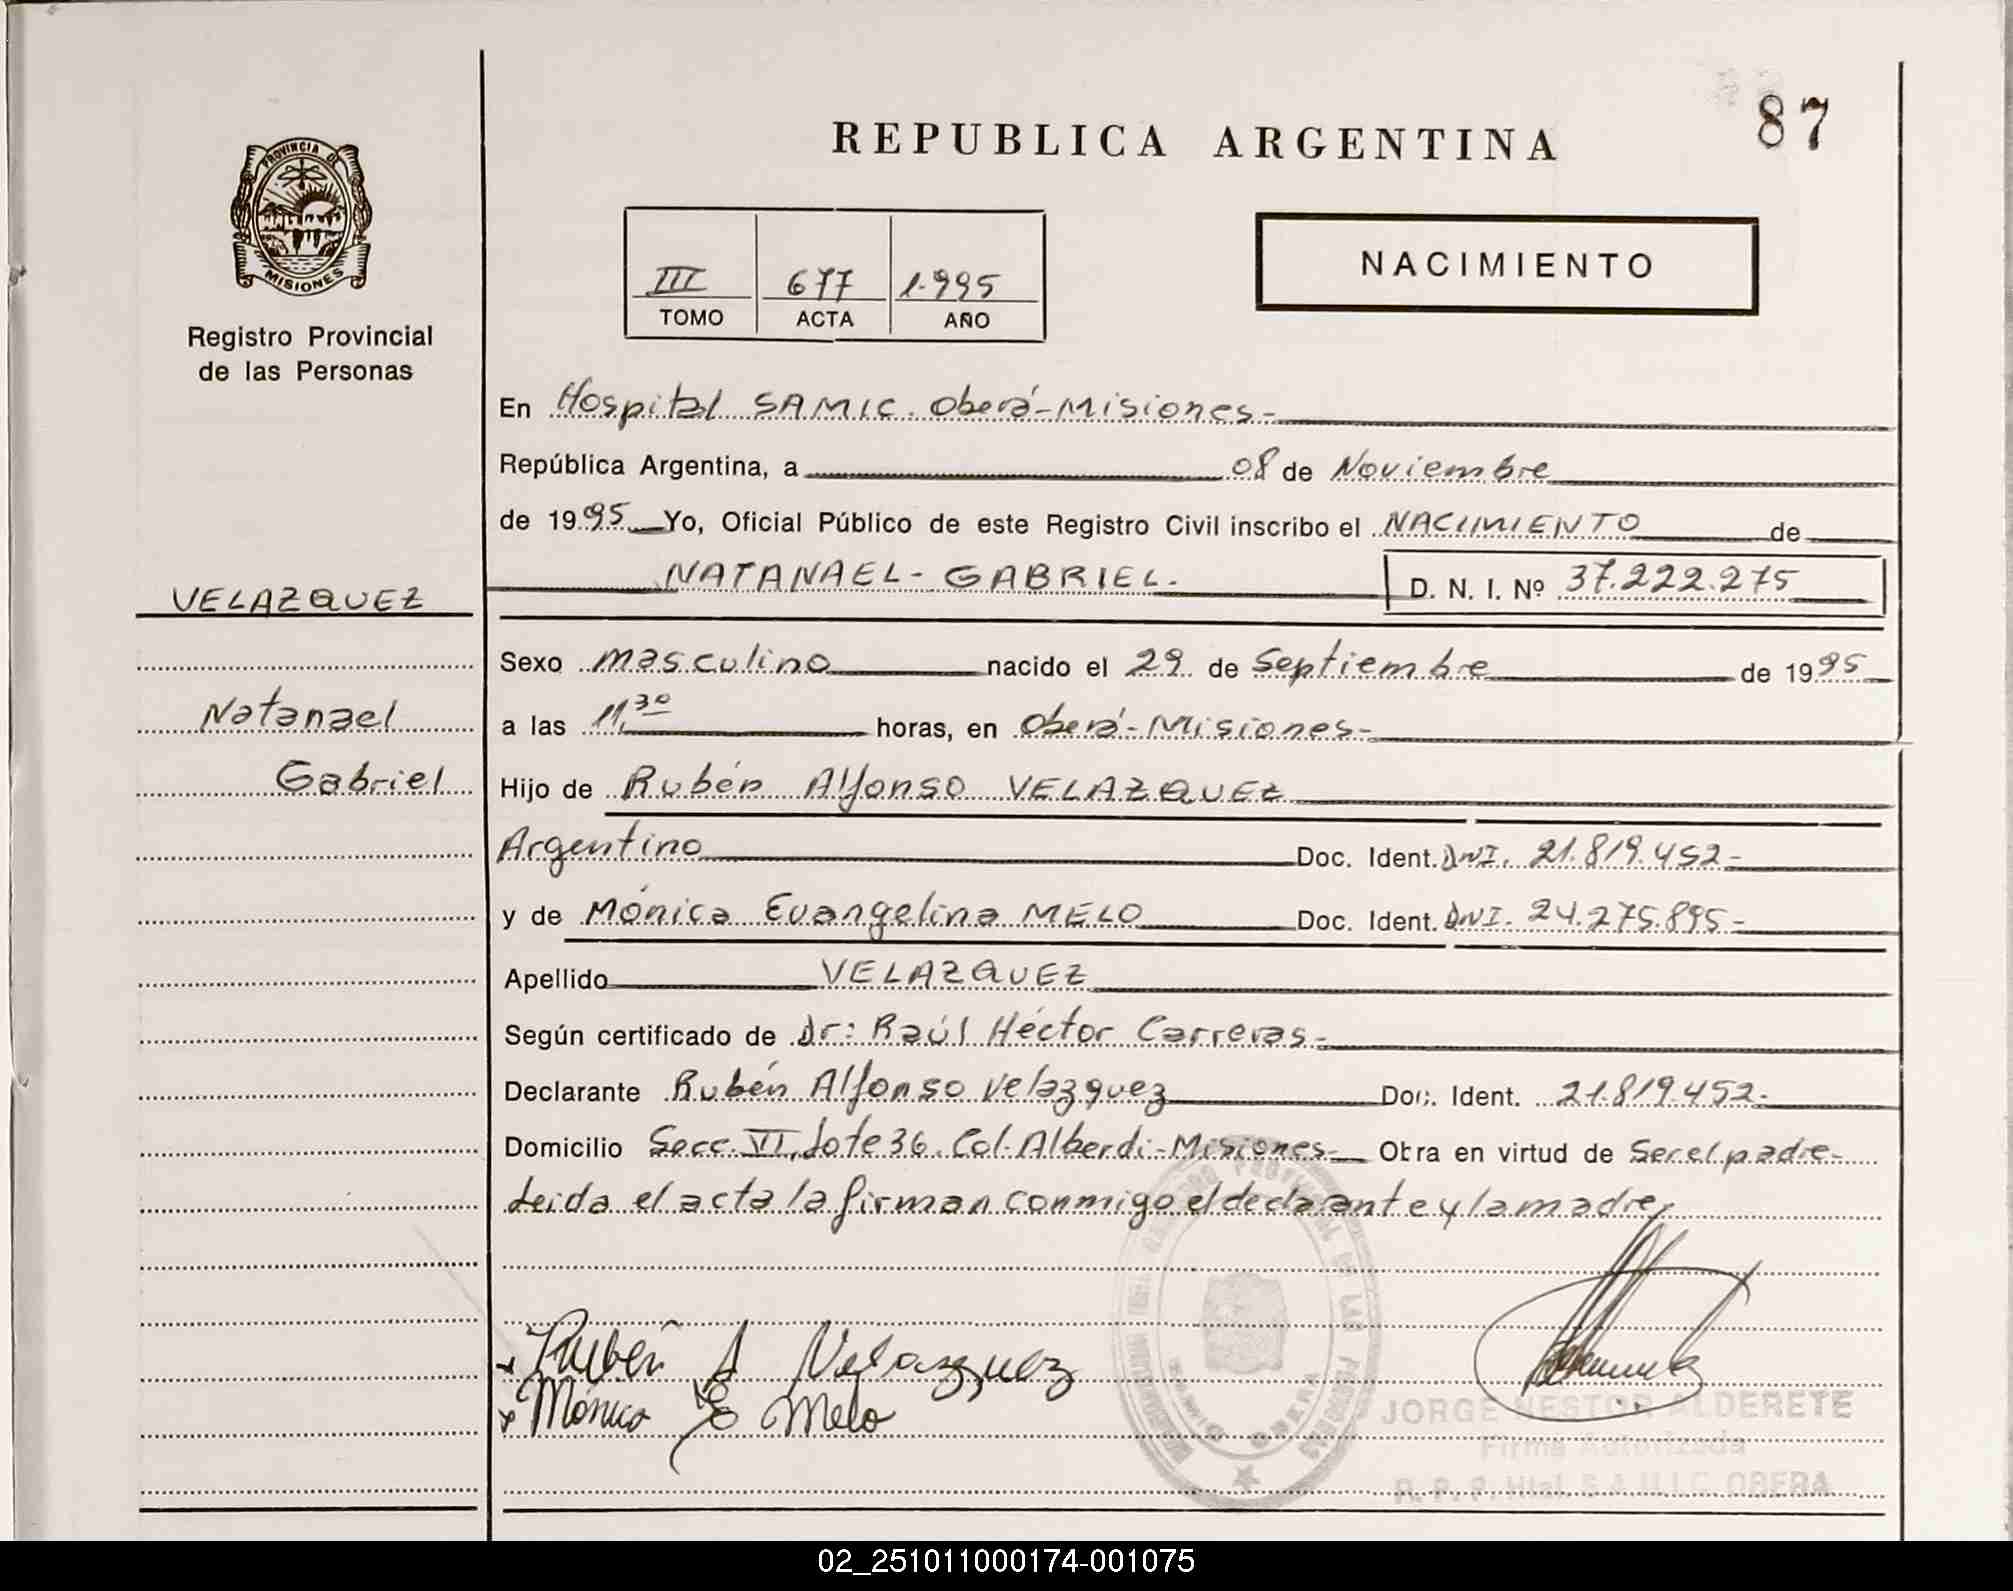 87
REPUBLICA ARGENTINA
PROVINCIA DE
MISIONES
Registro Provincial
de las Personas
III 677 1.995
TOMO ACTA AÑO
NACIMIENTO
En Hospital SAMIC. Oberá-Misiones-
República Argentina, a 08 de Noviembre
de 1995 Yo, Oficial Público de este Registro Civil inscribo el NACIMIENTO de
NATANAEL- GABRIEL. D. N. I. Nº 37.222.275
VELAZQUEZ
Natanael
Gabriel
Sexo masculino nacido el 29 de Septiembre de 1995
a las 11,30 horas, en Oberá-Misiones-
Hijo de Rubén Alfonso VELAZQUEZ
Argentino Doc. Ident. DNI. 21.819.452-
y de Mónica Evangelina MELO Doc. Ident. DNI. 24.275.895-
Apellido VELAZQUEZ
Según certificado de Dr: Raúl Héctor Carreras-
Declarante Rubén Alfonso Velazquez Doc. Ident. 21.819.452-
Domicilio Secc. VI, Lote 36. Col. Alberdi-Misiones- Obra en virtud de Ser el padre-
Leida el acta la firman conmigo el declarante y la madre,
Rubén A Velazquez
Mónica E Melo
SAMIC OBERA
JORGE NESTOR ALDERETE
Firma Autorizada
R. P. P. Htal. S.A.M.I.C. OBERA
02_251011000174-001075